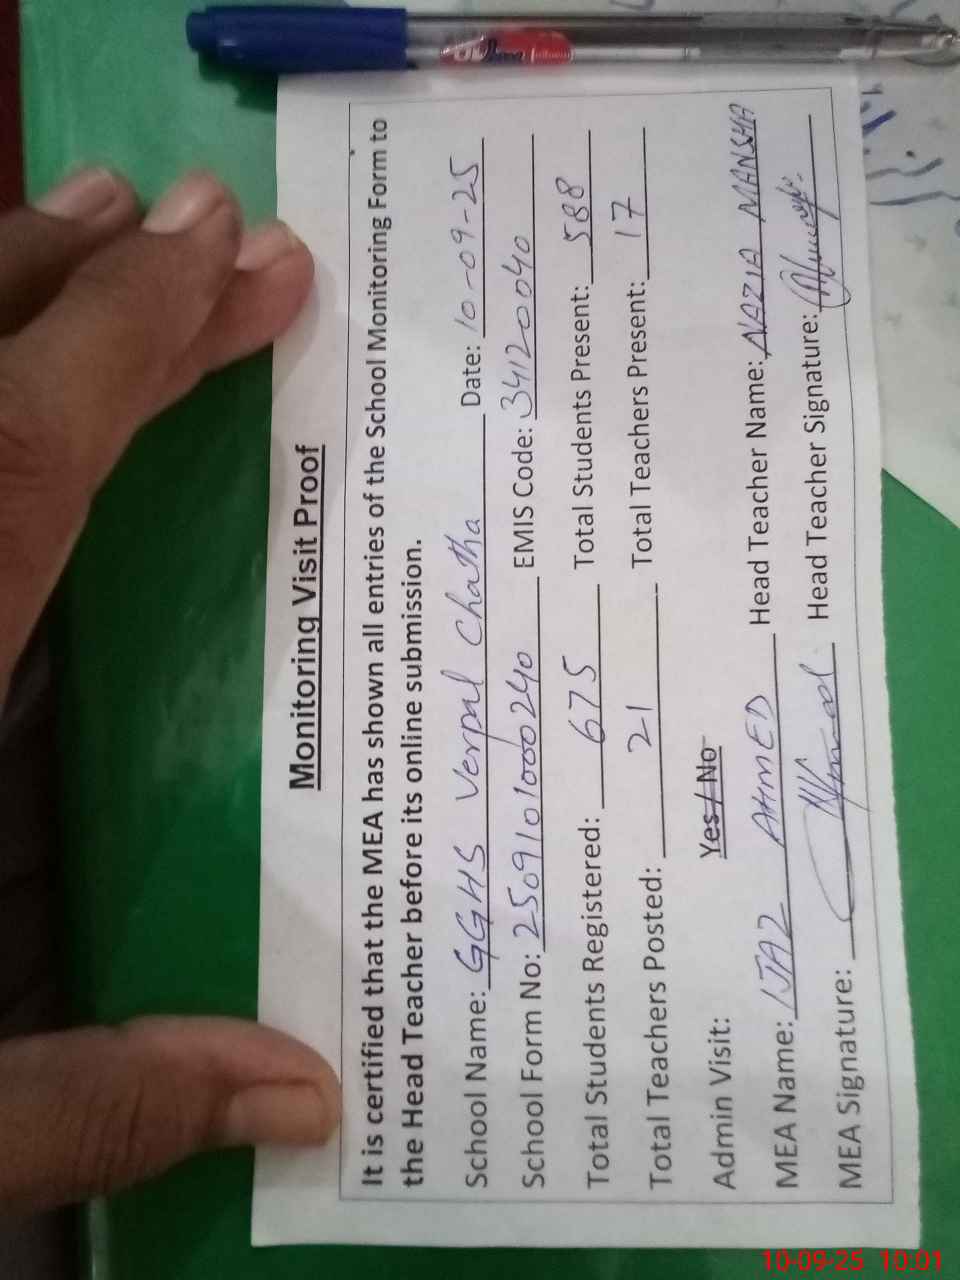 Monitoring Visit Proof
It is certified that the MEA has shown all entries of the School Monitoring Form to
the Head Teacher before its online submission.
School Name: GGHS Verpal Chatha Date: 10-09-25
School Form No: 2509101000240 EMIS Code: 34120040
Total Students Registered: 675 Total Students Present: 588
Total Teachers Posted: 21 Total Teachers Present: 17
Admin Visit: Yes / No
MEA Name: IJAZ AHMED Head Teacher Name: NAZIA MANSHA
MEA Signature: Head Teacher Signature:
10-09-25 10:01